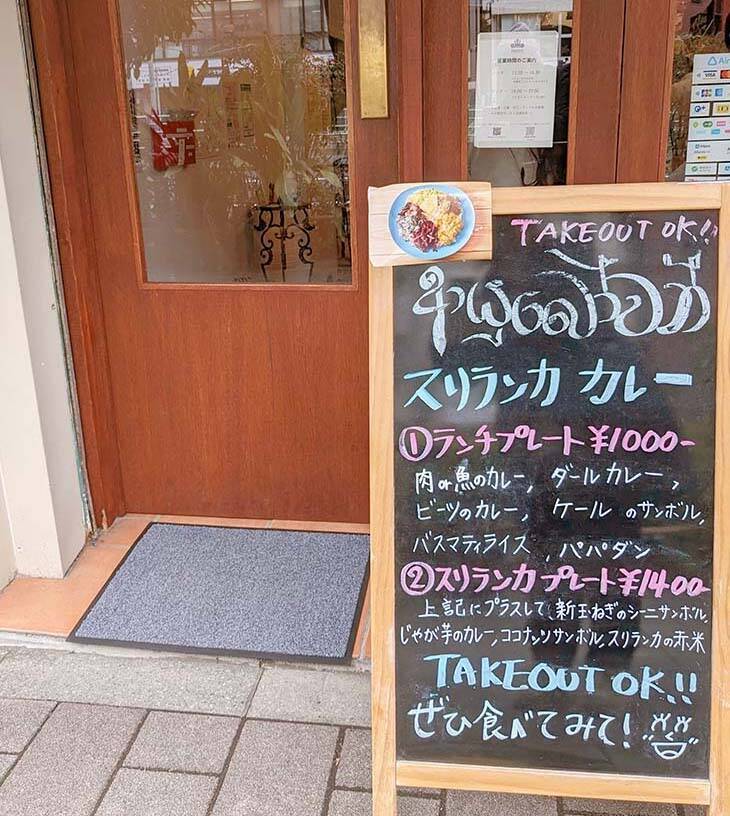 営業時間のご案内
VISA
TAKEOUT OK!!
ආයුබෝවන්
スリランカ カレー
①ランチプレート ¥1000-
肉or魚のカレー, ダールカレー,
ビーツのカレー, ケールのサンボル,
バスマティライス, パパダン
②スリランカプレート¥1400-
上記にプラスして、新玉ねぎのシーニサンボル,
じゃが芋のカレー, ココナッツサンボル, スリランカの赤米
TAKEOUT OK!!
ぜひ食べてみて!